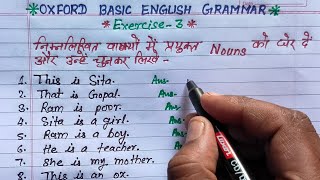 *OXFORD BASIC ENGLISH GRAMMAR*
*Exercise-3*
निम्नलिखित वाक्यों में प्रयुक्त Nouns को घेर दें
और उन्हें चुनकर लिखें -
1. This is Sita. Ans.
2. That is Gopal. Ans.
3. Ram is poor. Ans.
4. Sita is a girl. Ans.
5. Ram is a boy. Ans.
6. He is a teacher. Ans.
7. She is my mother. Ans.
8. This is an ox.